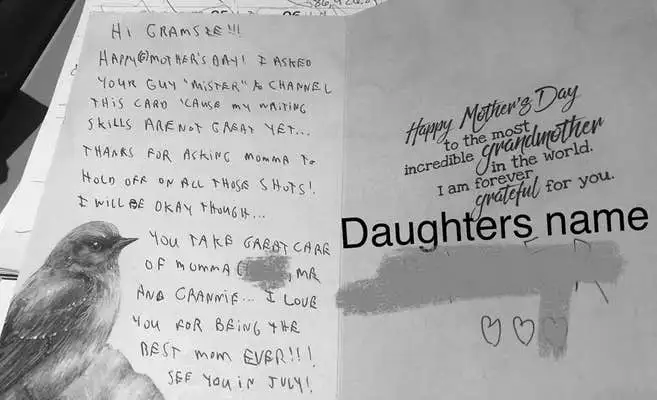 HI GRAMSIE!!!
HAPPY(G)MOTHER'S DAY! I ASKED
YOUR GUY "MISTER" to CHANNEL
THIS CARD 'CAUSE MY WRITING
SKILLS ARE NOT GREAT YET...
THANKS FOR ASKING MOMMA TO
HOLD OFF ON ALL THOSE SHOTS!
I WILL BE OKAY THOUGH...
YOU TAKE GREAT CARE
OF MOMMA, MR
AND GRANNIE... I LOVE
YOU FOR BEING THE
BEST MOM EVER!!!
SEE YOU IN JULY!
Happy Mother's Day
to the most
incredible grandmother
in the world.
I am forever
grateful for you.
Daughters name